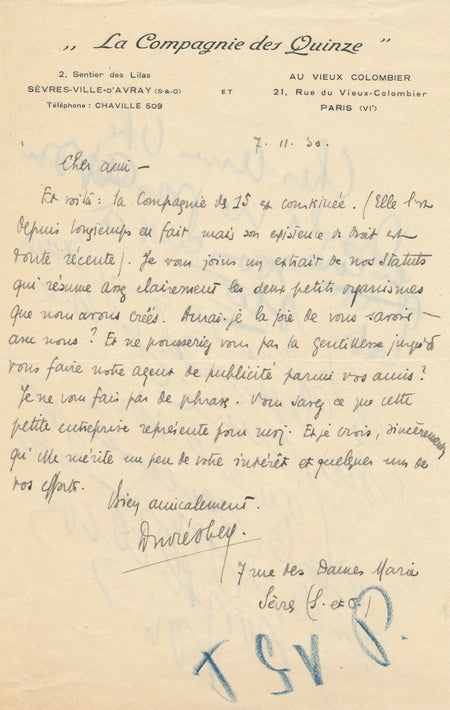 „ La Compagnie des Quinze ”
2, Sentier des Lilas
SÈVRES-VILLE-D'AVRAY (S-&-O)
Téléphone : CHAVILLE 509
ET
AU VIEUX COLOMBIER
21, Rue du Vieux-Colombier
PARIS (VIᵉ)
7. 11. 30.
Cher ami —
Et voilà : la Compagnie des 15 est constituée. (Elle l'est
depuis longtemps en fait mais son existence de droit est
toute récente). Je vous joins un extrait de nos Statuts
qui résume assez clairement les deux petits organismes
que nous avons créés. Aurai-je la joie de vous savoir —
avec nous ? Et ne pousseriez vous pas la gentillesse jusqu'à
vous faire notre agent de publicité parmi vos amis ?
Je ne vous fais pas de phrases. Vous savez ce que cette
petite entreprise représente pour moi. Et je crois, sincèrement,
qu'elle mérite un peu de votre intérêt et quelques uns de
vos efforts.
Bien amicalement.
André Obey.
7 rue des Dames Marie
Sèvres (S. et O.)